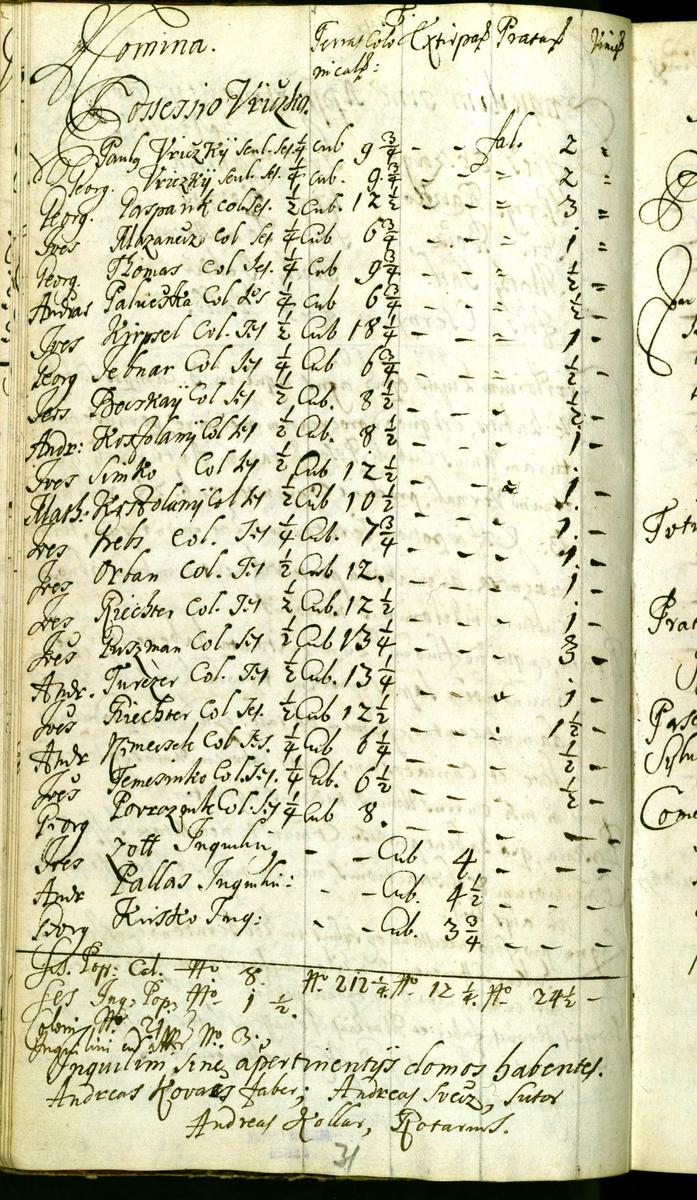 Nomina. Terras Colo Extirpat Pratas
nicals:
Possessio Vriczko.
Paulg Vriczkÿ scul. Ses ¼ Cub 9 ¾ - - fal. 2 =
Georg. Vriczkÿ scul. Ses. ¼ Cub. 9 ¾ - - = 2 =
Georg. Gasparik Col Ses. ½ Cub. 12 ½ - - = 3 =
Jves Mazaneuz Col Ses ¼ Cub 6 ¾ - - = 1 -
Georg. Thomas Col Ses. ¼ Cub 9 ¾ - - = ½ -
Andras Palueska Col Ses ¼ Cub 6 ¾ - - - ½ -
Jves Kyrpsel Col. Ses ½ Cub 18 ¼ - - - 1 -
Georg Sebnar Col Ses ¼ Cub 6 ¾ - - = ½ -
Jves Bocskaÿ Col Ses ½ Cub. 8 ½ - - - ½ -
Andr: Kosstolanÿ Col Ses ½ Cub. 8 ½ - - - 1 -
Jves Simko Col Ses ½ Cub 12 ½ - - - 1 -
Math. Kostolanÿ Col Ses ½ Cub 10 ½ - - - 1. -
Jves Krebs Col. Ses ¼ Cub. 7 ¾ - - - 1. -
Jves Orban Col. Ses ½ Cub 12. - - - 1 -
Jves Riechter Col. Ses ½ Cub. 12 ½ - - - 1 -
Jves Puszman Col Ses ½ Cub 13 ¼ - - - 3 -
Andr. Turczer Col. Ses ½ Cub. 13 ¼ - - - 1 -
Jves Riechter Col Ses. ½ Cub 12 ½ - - = 1 ½ -
Andr Kmersek Col Ses. ¼ Cub 6 ¼ - - - ½ -
Jves Temesinko Col. Ses. ¼ Cub. 6 ½ - - - ½ -
Georg Porrazink Col. Ses ¼ Cub 8. - - - -
Jves Zott Inquilin - - Cub 4 - - -
Andr Pallas Inquilin: - - Cub. 4 ½ - - -
Georg Krissko Inq: - - Cub. 3 ¾ - - -
Ses. Pop: Col. No 8. No 212 ¼. No 12 ¼. No 24 ½ -
Ses Inq: Pop: No 1 ½.
Coloni No 21
Inquilini No. 3.
Inquilini sine apertinentÿs domos habentes.
Andreas Kovacs Faber; Andreas Sveuz, Sutor
Andreas Kollar, Rotarius.
31